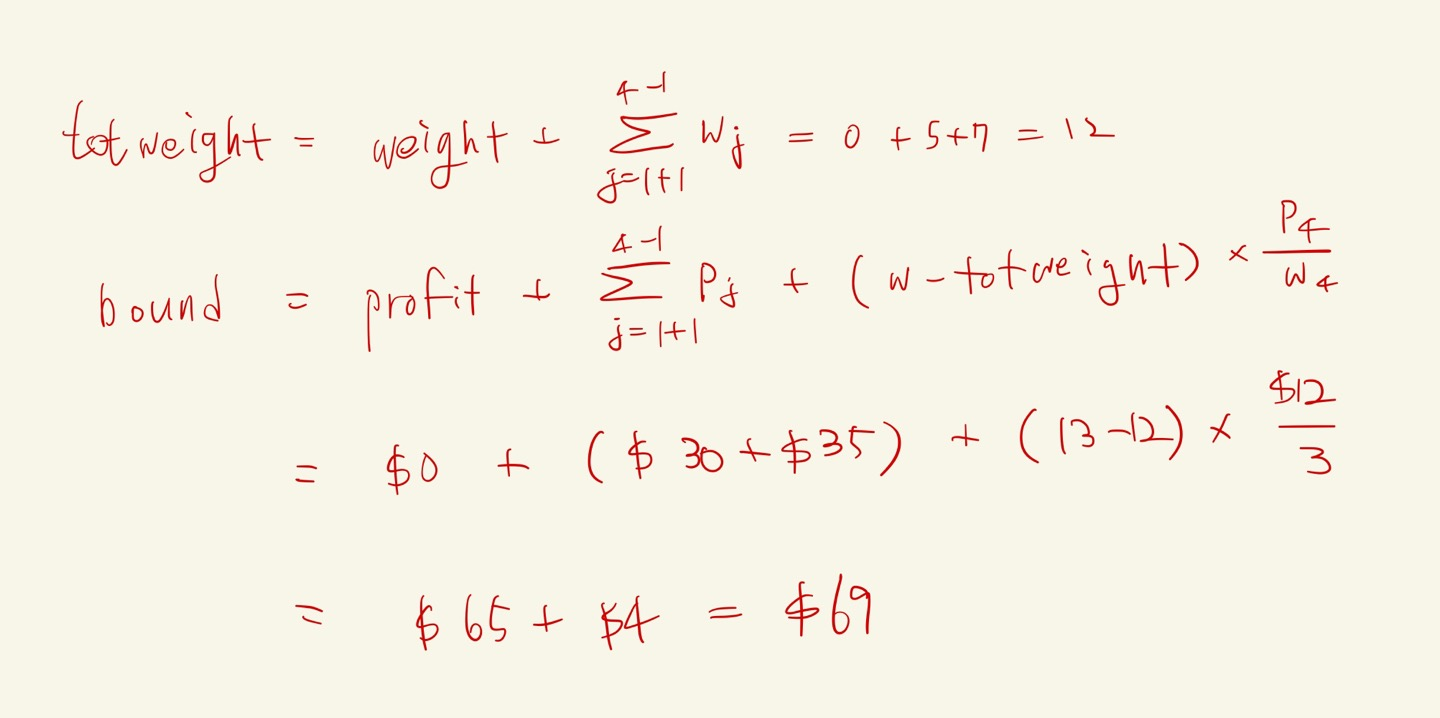 totweight = weight + \sum_{j=1+1}^{4-1} w_j = 0 + 5+7 = 12
bound = profit + \sum_{j=1+1}^{4-1} P_j + (W - totweight) × \frac{P_4}{W_4}
= $0 + ($30 + $35) + (13-12) × \frac{$12}{3}
= $65 + $4 = $69